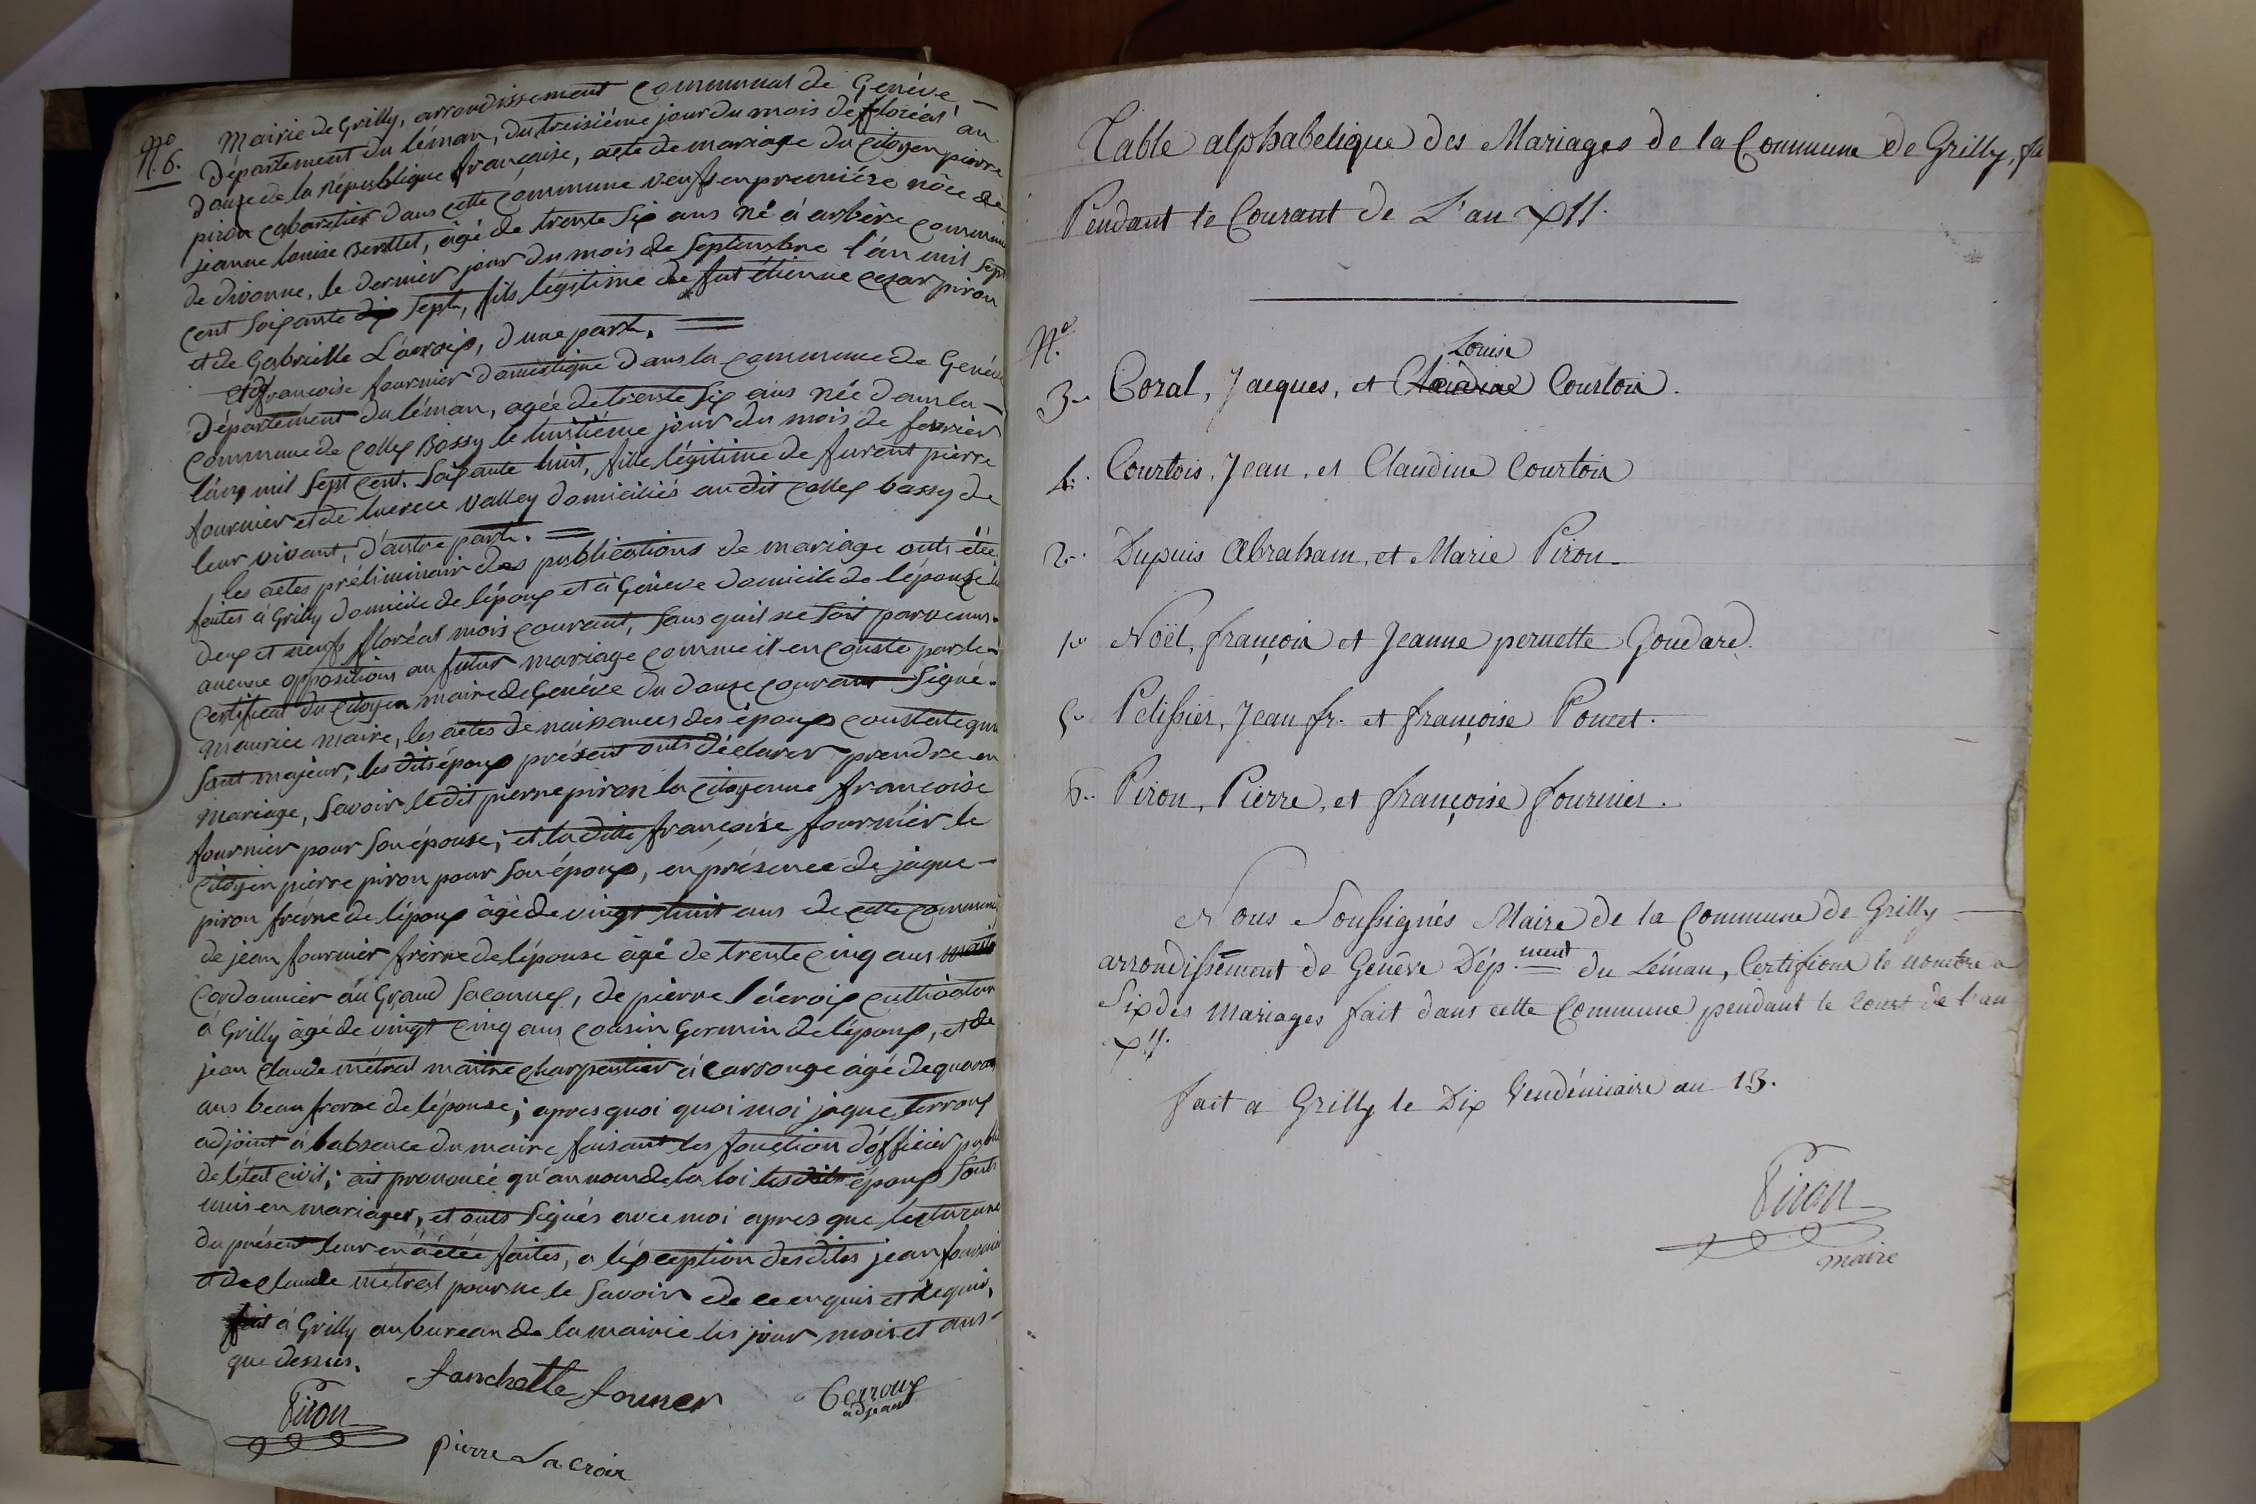 N.o 6. Mairie de Grilly, arrondissement communal de Genève,
Département du léman, du treisiéme jour du mois de floréal an
douze de la république française, acte de mariage du citoyen pierre
piron cabaretier dans cette commune veuf en premiére nôce de
jeanne louise Berthet, agé de trente six ans né à arbére commune
de divonne, le dernier jour du mois de septembre l'an mil sept
cent soixante dix sept, fils légitime de fut étienne cezar piron
et de Gabrielle Lacroix, d'une part.
et françoise fournier domestique dans la commune de Genève
Département du léman, agée de trente six ans née dans la
commune de collex Bossy le huitiéme jour du mois de fevrier
l'an mil sept cent soixante huit, fille légitime de furent pierre
fournier et de lucrece valley domiciliés au dit collex bassy de
leur vivant, d'autre part.
les actes préliminair des publications de mariage onts étée
faites à Grilly domicile de l'époux et à Genève domicile de l'épouse
deux et neuf floréal mois courant, sans quil ne soit parvenus
aucune oppositions au futur mariage comme il en conste par le
certificat du citoyen maire de Genève du douze courant signé
maurice maire, les actes de naissances des époux constate quil
sont majeur, les dits époux présent onts déclarer prendre en
mariage, savoir le dit pierre piron la citoyenne francoise
fournier pour son épouse, et la ditte françoise fournier le
citoyen pierre piron pour son époux, en présence de jaque
piron frérre de l'époux âgé de vingt huit ans de cette commune
de jean fournier frérre de l'épouse âgé de trente cinq ans
cordonnier au Grand saconnex, de pierre lacroix cultivateur
à Grilly âgé de vingt cinq ans cousin Germin de l'époux, et de
jean claude métral maitre charpentier à carrouge âgé de quarante
ans beau frerre de l'épouse; apres quoi quoi moi jaque terroux
adjoint à l'absence du maire faisant les fonction d'officier public
de l'état civil; ait prononcé qu'au nom de la loi les dits époux sonts
unis en mariages, et onts signés avec moi apres que lecture
du présent leur en a étée faites, a l'exception des dites jean fournier
et de claude métral pour ne le savoir de ce enquis et requis,
fait à Grilly au bureau de la mairie les jour mois et ans
que dessus.
fanchette fourner
Terroux
adjoint
Piron
pierre Lacroix
Table alphabetique des Mariages de la Commune de Grilly,
Pendant le Courant de L'an XII.
N.o
3. Coral, Jacques, et Claudine Louise Courtois.
4. Courtois, Jean, et Claudine Courtois
2. Dupuis Abraham, et Marie Piron
1. Noël, françois et Jeanne pernette Goudard.
5. Pelissier, Jean fr. et françoise Poncet.
6. Piron, Pierre, et françoise fournier.
Nous Soussignés Maire de la Commune de Grilly
arrondissement de Genève Dép.ment du Léman, Certifions le nombre
Six des Mariages fait dans cette Commune pendant le Court de l'an
XII.
fait a Grilly le Dix Vendémiaire an 13.
Piron
maire